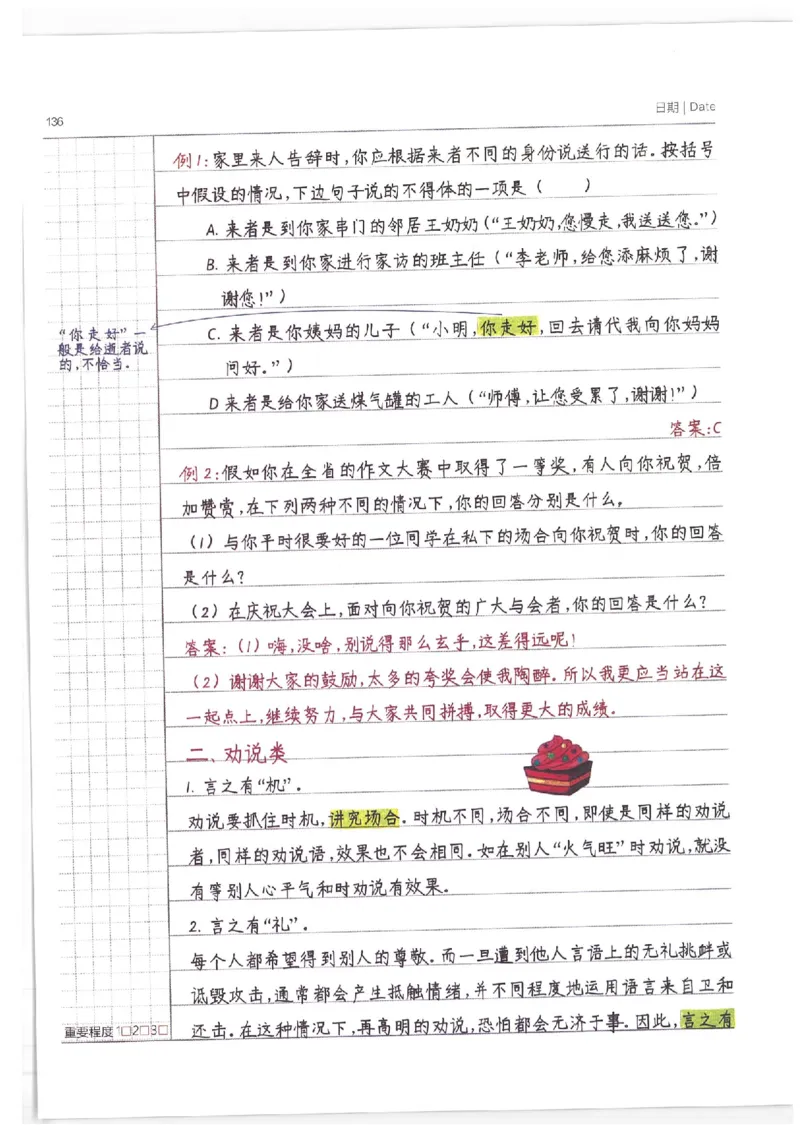 日期 | Date
136
例1:家里来人告辞时,你应根据来者不同的身份说送行的话.按括号
中假设的情况,下边句子说的不得体的一项是(  )
A.来者是到你家串门的邻居王奶奶(“王奶奶,您慢走,我送送您.”)
B.来者是到你家进行家访的班主任(“李老师,给您添麻烦了,谢
谢您!”)
C.来者是你姨妈的儿子(“小明,你走好,回去请代我向你妈妈
问好.”)
“你走好”一
般是给逝者说
的,不恰当.
D来者是给你家送煤气罐的工人(“师傅,让您受累了,谢谢!”)
答案:C
例2:假如你在全省的作文大赛中取得了一等奖,有人向你祝贺,倍
加赞赏,在下列两种不同的情况下,你的回答分别是什么.
(1)与你平时很要好的一位同学在私下的场合向你祝贺时,你的回答
是什么?
(2)在庆祝大会上,面对向你祝贺的广大与会者,你的回答是什么?
答案:(1)嗨,没啥,别说得那么玄乎,这差得远呢!
(2)谢谢大家的鼓励,太多的夸奖会使我陶醉.所以我更应当站在这
一起点上,继续努力,与大家共同拼搏,取得更大的成绩.
二、劝说类
1.言之有“机”.
劝说要抓住时机,讲究场合.时机不同,场合不同,即使是同样的劝说
者,同样的劝说语,效果也不会相同.如在别人“火气旺”时劝说,就没
有等别人心平气和时劝说有效果.
2.言之有“礼”.
每个人都希望得到别人的尊敬.而一旦遭到他人言语上的无礼挑衅或
诋毁攻击,通常都会产生抵触情绪,并不同程度地运用语言来自卫和
还击.在这种情况下,再高明的劝说,恐怕都会无济于事.因此,言之有
重要程度 1□2□3□